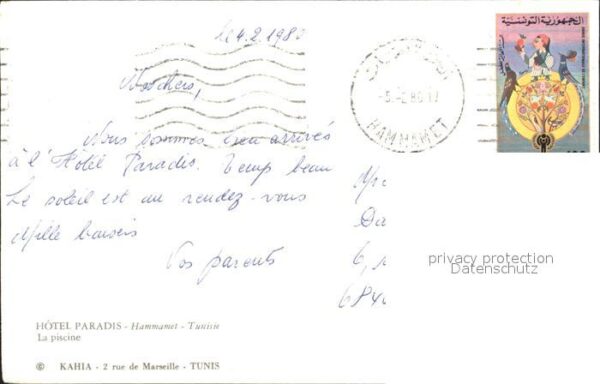 le 4.2.1980
الجمهورية التونسية
- 5 - 2 80 17
HAMMAMET
Nos chers,
Nous sommes bien arrivés
à l'Hôtel Paradis. Temps beau
Le soleil est au rendez-vous
Mille baisers
Vos parents
Da
6,
684
privacy protection
Datenschutz
HÔTEL PARADIS - Hammamet - Tunisie
La piscine
© KAHIA - 2 rue de Marseille - TUNIS